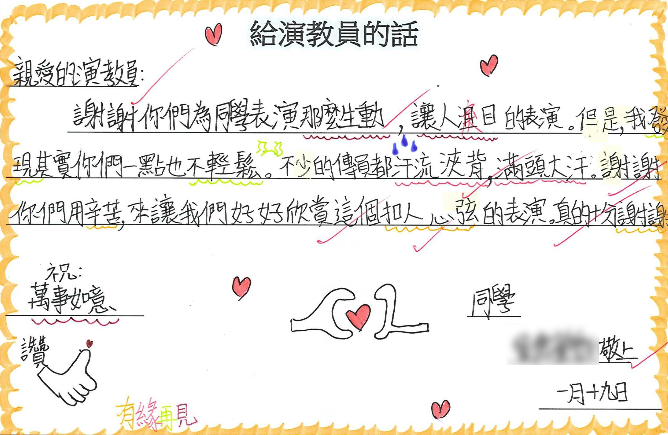 給演教員的話
親愛的演教員:
謝謝你們為同學表演那麼生動,讓人逗目的表演。但是,我發
現其實你們一點也不輕鬆。不少的傳員都汗流浹背,滿頭大汗。謝謝
你們用辛苦,來讓我們好好欣賞這個扣人心弦的表演。真的十分謝謝
祝:
萬事如意
同學
讚
敬上
一月十九日
有緣再見